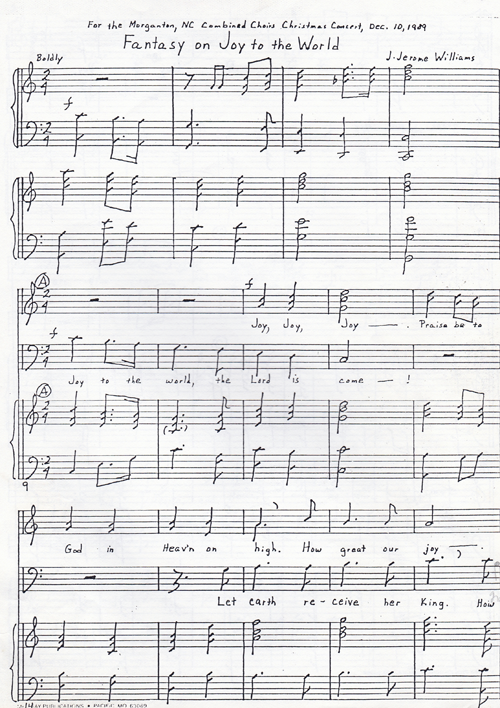 For the Morganton, NC Combined Choirs Christmas Concert, Dec. 10, 1989
Fantasy on Joy to the World
Boldly
J. Jerome Williams
f
A
f
Joy, Joy, Joy — . Praise be to
f
Joy to the world, the Lord is come — !
A
9
God in Heav'n on high. How great our joy — .
Let earth re-ceive her King. How
PUBLICATIONS • PACIFIC MO